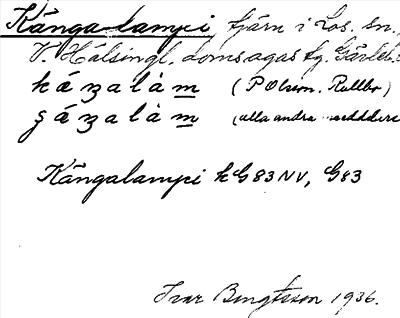 Kånga-lampi, tjärn i Los. sn.,
V. Hälsingl. domsagas tg. Gävleb.
káŋalàm (P Olsson, Rullbo)
gáŋalàm (alla andra meddelare
Kångalampi kG83NV, G83
Ivar Bengtsson 1936.